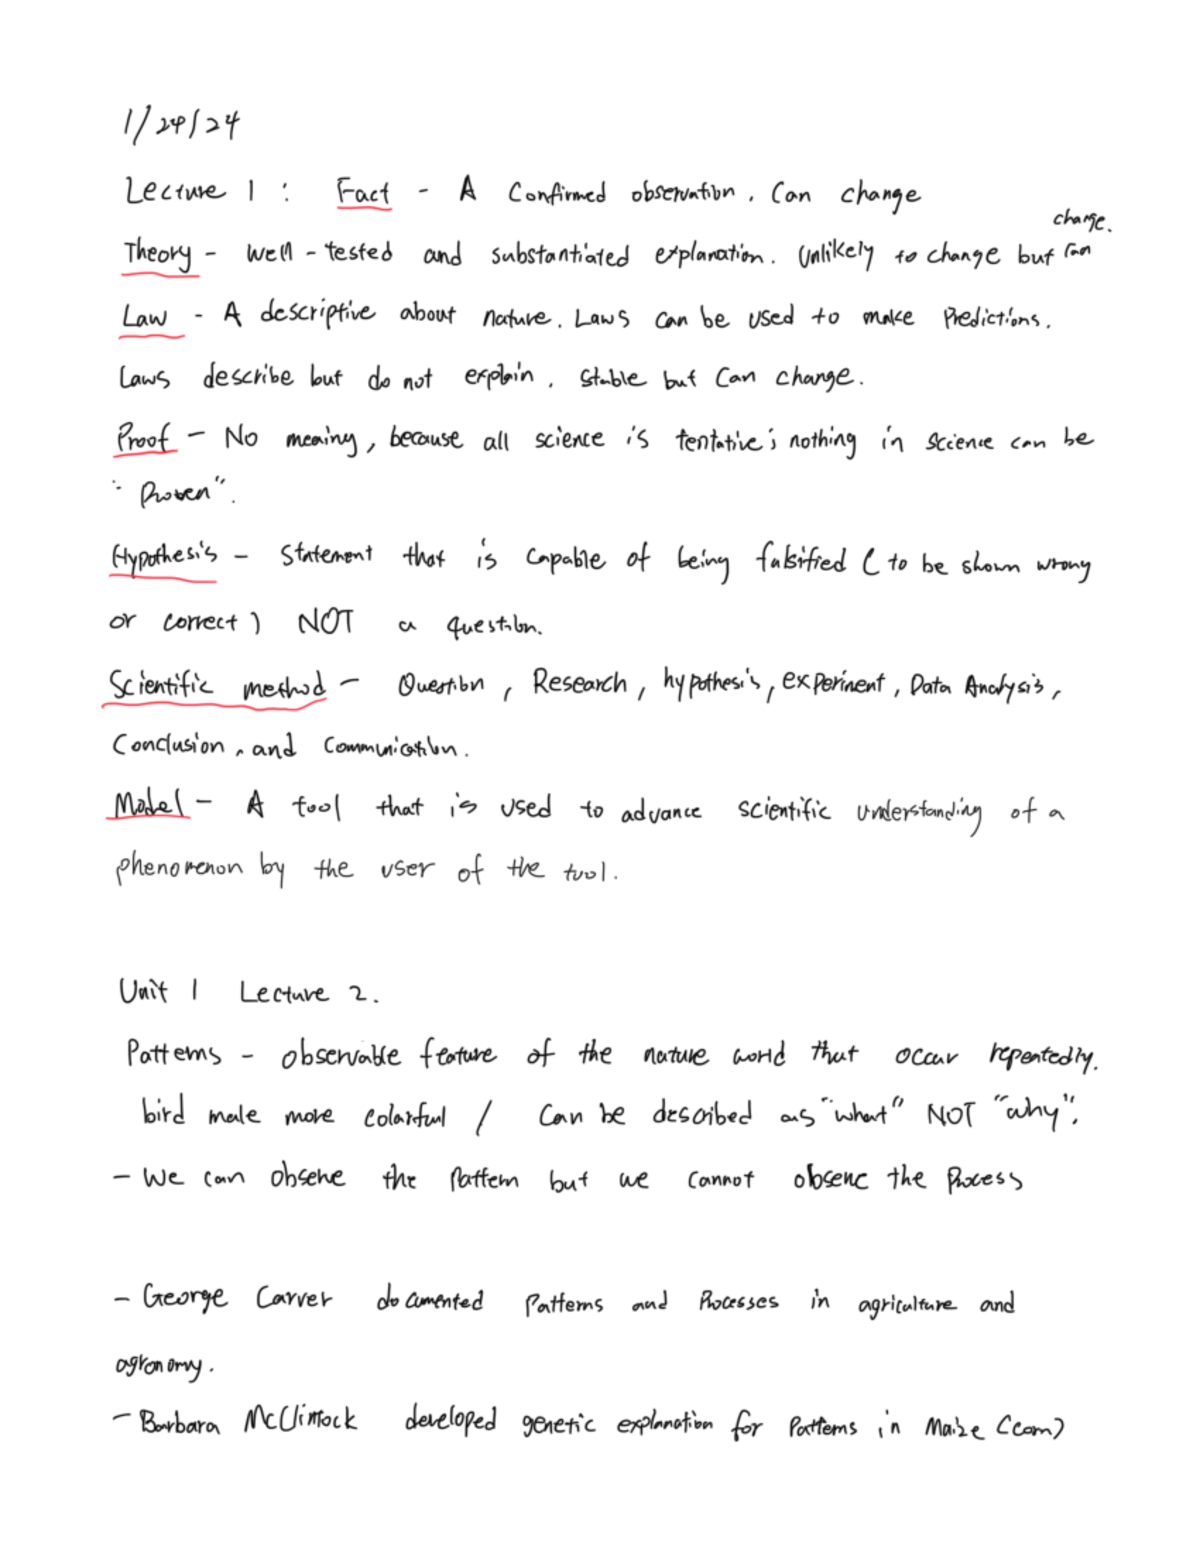 1/24/24
Lecture 1 : Fact - A confirmed observation. Can change
Theory - well-tested and substantiated explanation. Unlikely to change but can change.
Law - A descriptive about nature. Laws can be used to make predictions.
Laws describe but do not explain. Stable but can change.
Proof - No meaning, because all science is tentative; nothing in science can be
"Proven".
Hypothesis - Statement that is capable of being falsified (to be shown wrong
or correct) NOT a question.
Scientific method - Question, Research, hypothesis, experiment, Data Analysis,
Conclusion, and Communication.
Model - A tool that is used to advance scientific understanding of a
phenomenon by the user of the tool.
Unit 1 Lecture 2.
Patterns - observable feature of the nature world that occur repeatedly.
bird male more colorful / Can be described as "what" NOT "why".
- We can observe the pattern but we cannot observe the process
- George Carver documented patterns and processes in agriculture and
agronomy.
- Barbara McClintock developed genetic explanation for patterns in Maize (corn)